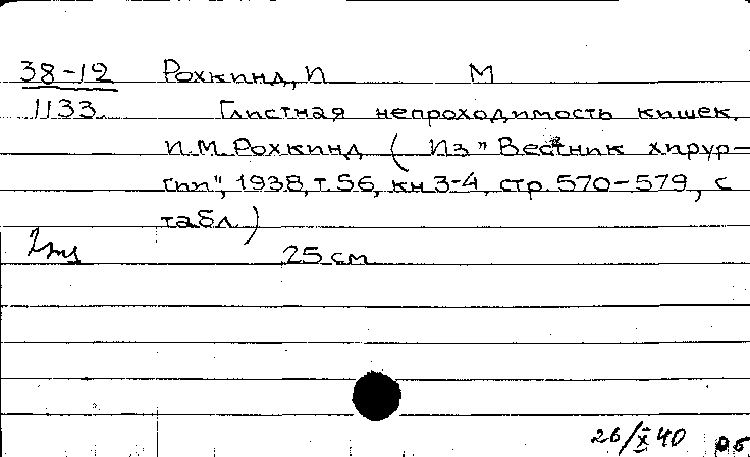 38-12 Рохкинд, И М
1133. Глистная непроходимость кишек.
И.М. Рохкинд ( Из "Вестник хирур-
гии", 1938, т. 56, кн 3-4, стр. 570-579, с
табл.)
2 экз 25 см
26/X 40 рб